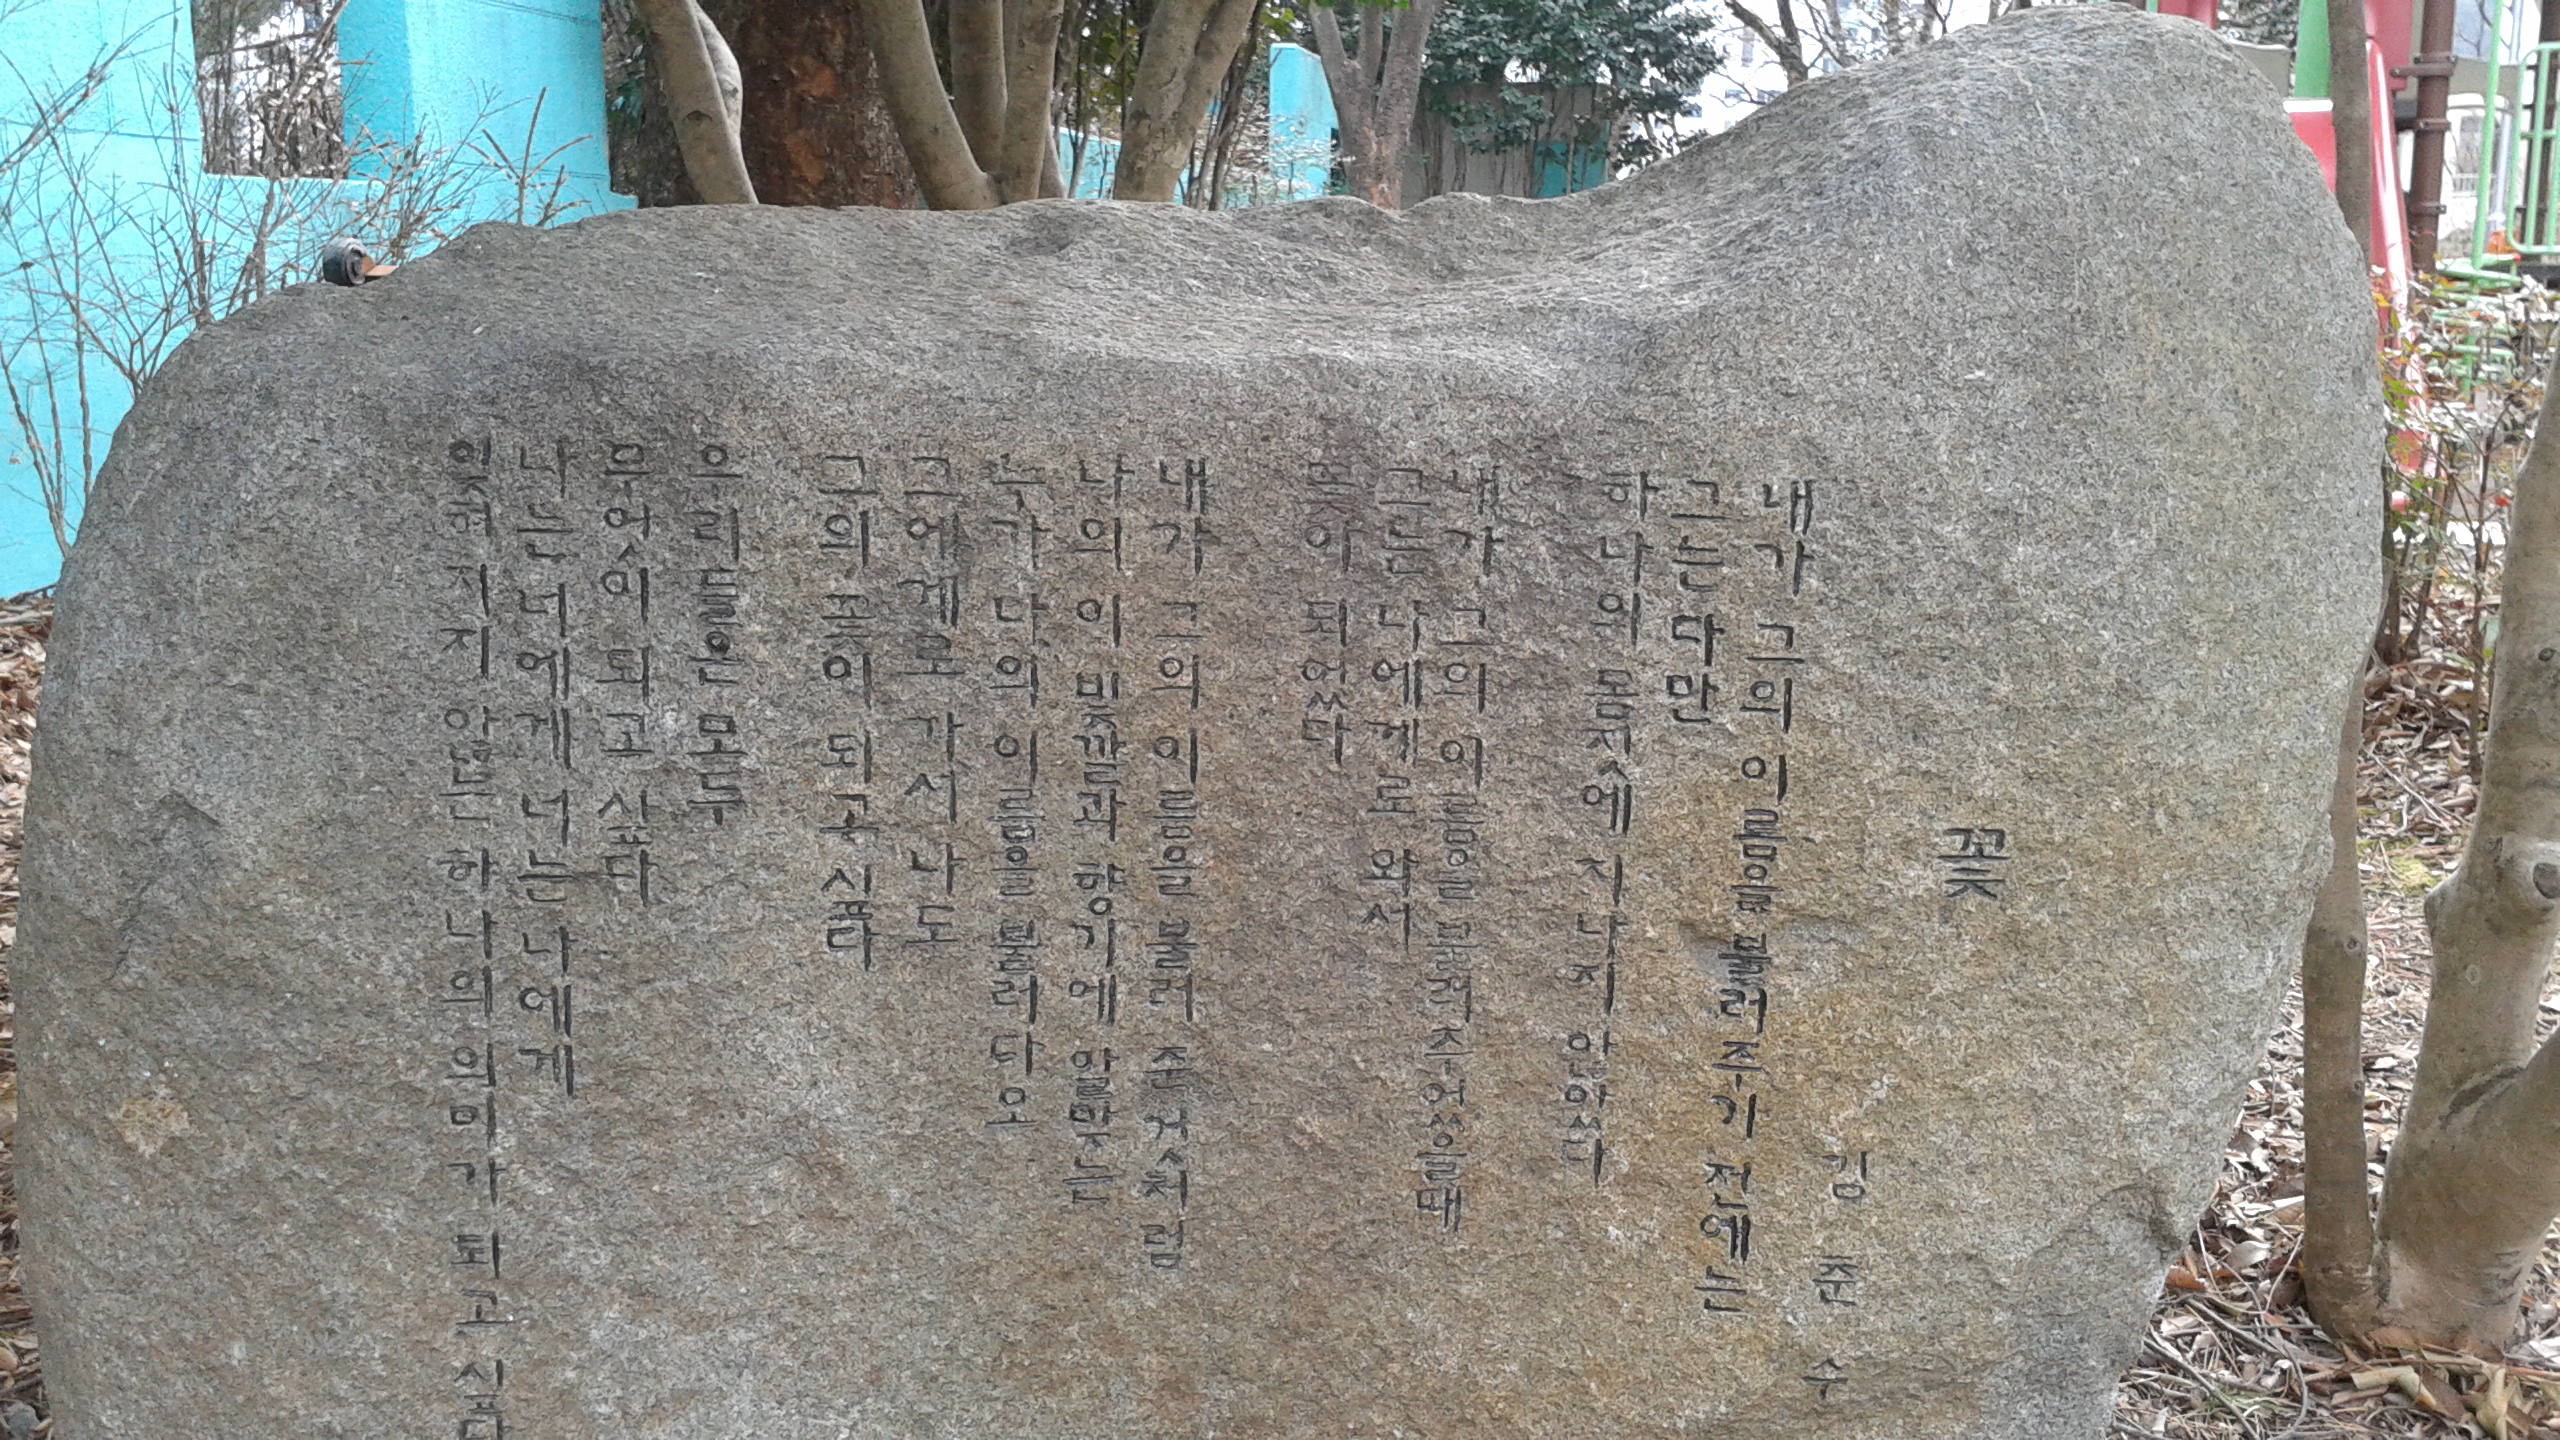 꽃
김춘수
내가 그의 이름을 불러 주기 전에는
그는 다만
하나의 몸짓에 지나지 않았다
내가 그의 이름을 불러 주었을때
그는 나에게로 와서
꽃이 되었다
내가 그의 이름을 불러 준것처럼
나의 이 빛깔과 향기에 알맞는
누가 나의 이름을 불러 다오
그에게로 가서 나도
그의 꽃이 되고 싶다
우리들은 모두
무엇이 되고 싶다
나는 너에게 너는 나에게
잊혀지지 않는 하나의 의미가 되고 싶다